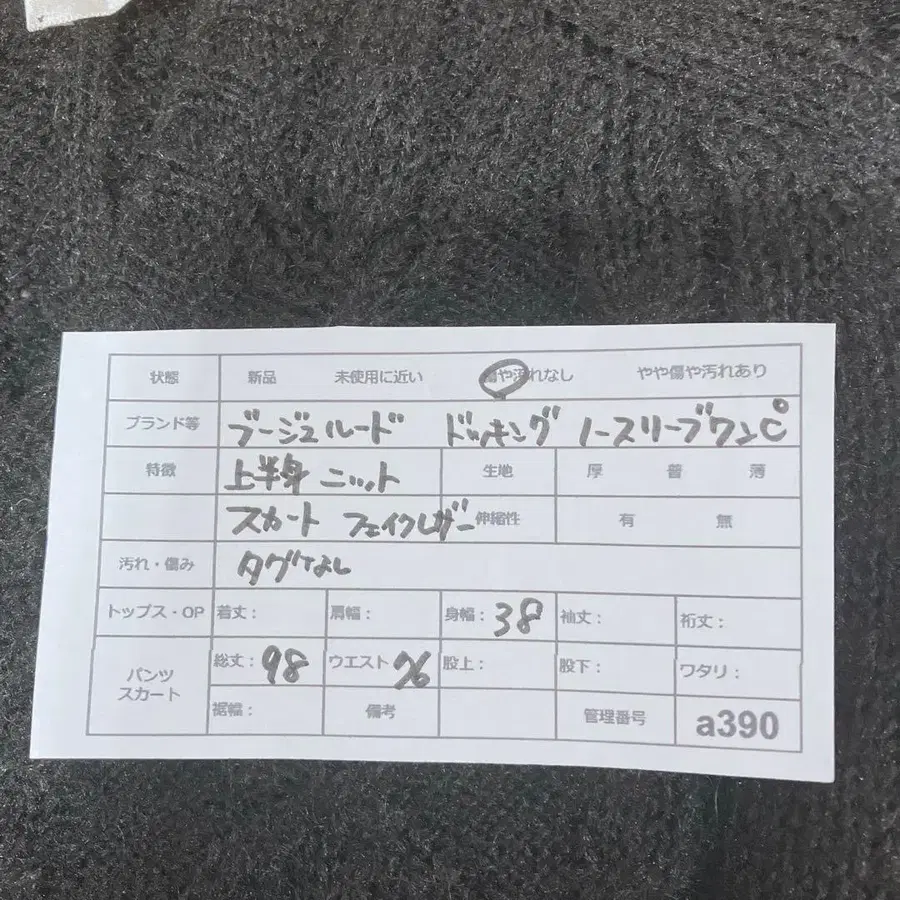 状態 新品 未使用に近い 傷や汚れなし やや傷や汚れあり
ブランド等 ブージュルード ドッキング ノースリーブワンピ
特徴 上半身 ニット 生地 厚 普 薄
スカート フェイクレザー 伸縮性 有 無
汚れ・傷み タグなし
トップス・OP 着丈: 肩幅: 身幅: 38 袖丈: 裄丈:
パンツ スカート 総丈: 98 ウエスト 76 股上: 股下: ワタリ:
裾幅: 備考 管理番号 a390